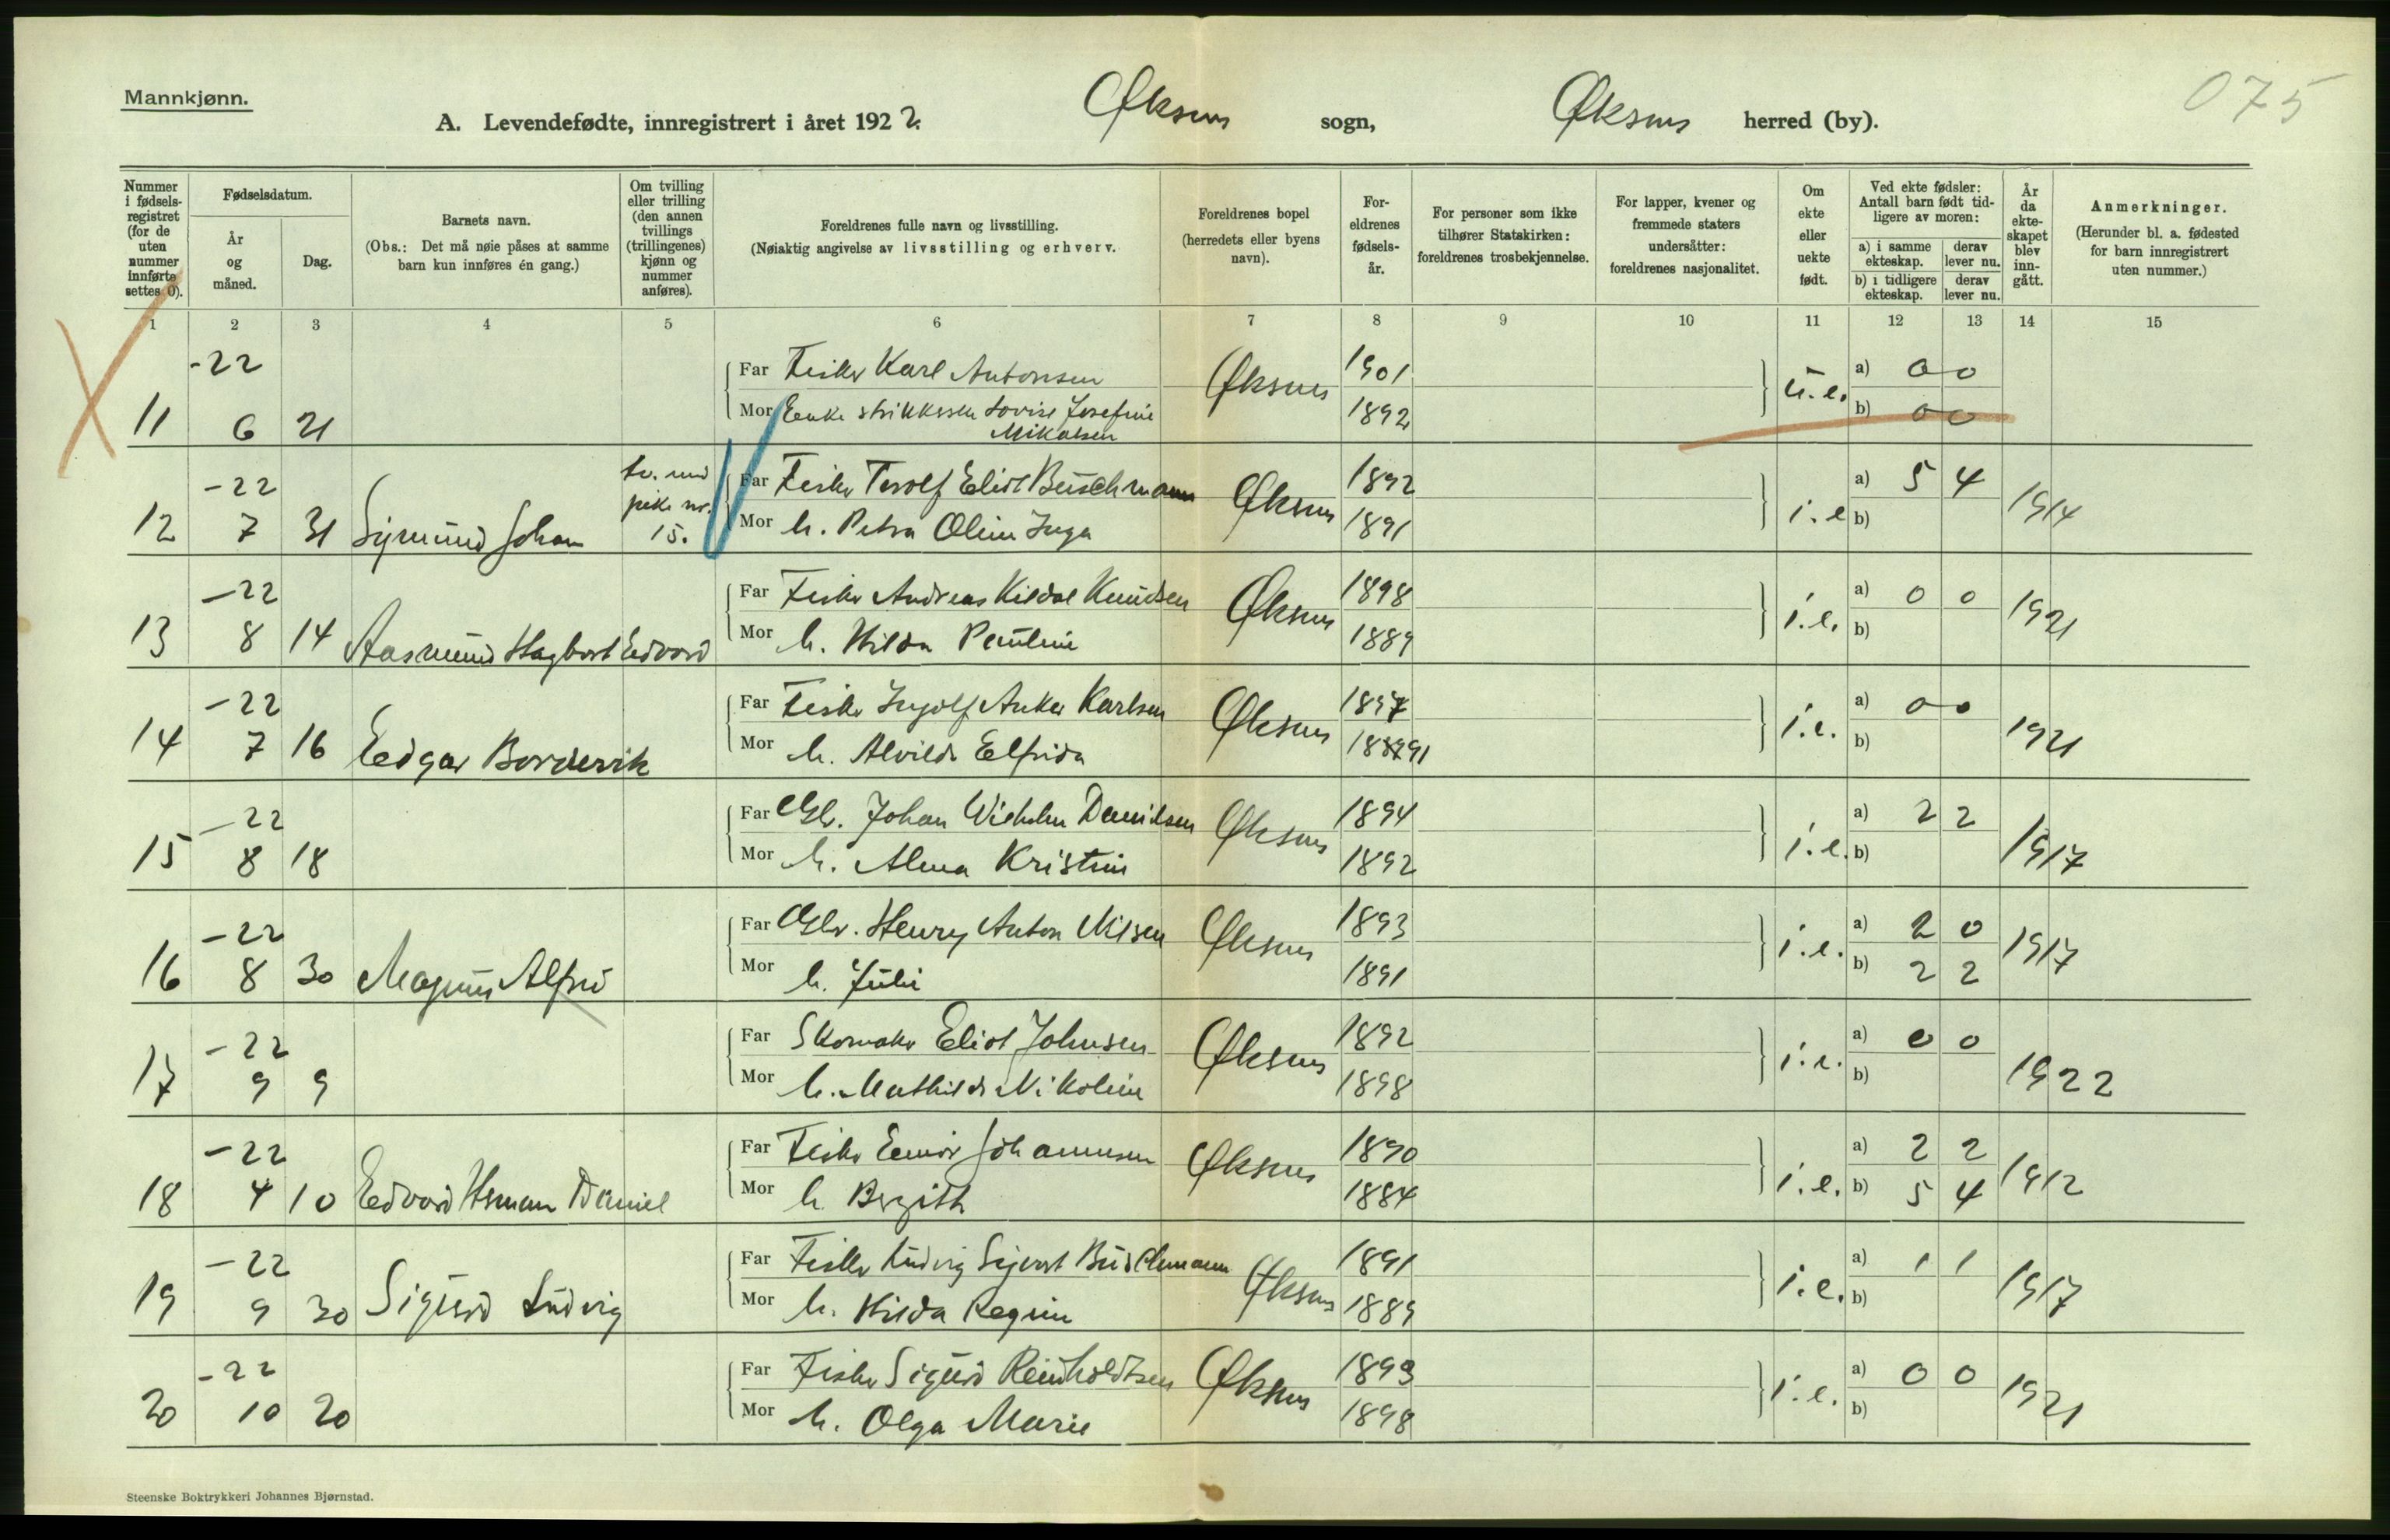 Mannkjønn.
A. Levendefødte, innregistrert i året 1922. Øksnes sogn, Øksnes herred (by).
075
Nummer i fødselsregistret (for de uten nummer innførte settes 0).
Fødselsdatum.
År og måned.
Dag.
Barnets navn.
(Obs.: Det må nøie påses at samme barn kun innføres én gang.)
Om tvilling eller trilling (den annen tvillings (trillingenes) kjønn og nummer anføres).
Foreldrenes fulle navn og livsstilling.
(Nøiaktig angivelse av livsstilling og erhverv.
Foreldrenes bopel (herredets eller byens navn).
Foreldrenes fødselsår.
For personer som ikke tilhører Statskirken: foreldrenes trosbekjennelse.
For lapper, kvener og fremmede staters undersåtter: foreldrenes nasjonalitet.
Om ekte eller uekte født.
Ved ekte fødsler: Antall barn født tidligere av moren:
a) i samme ekteskap. derav lever nu.
b) i tidligere ekteskap. derav lever nu.
År da ekteskapet blev inngått.
Anmerkninger.
(Herunder bl. a. fødested for barn innregistrert uten nummer.)
1 2 3 4 5 6 7 8 9 10 11 12 13 14 15
-22 Far Fisker Karl Antonsen Øksnes 1901 u.e. a) 0 0
11 6 21 Mor Enke Lovise Josefine Mikalsen 1892 b) 0 0
-22 tv. med pike nr. 15. Far Fisker Torolf Eliot Buschmann Øksnes 1892 i.e a) 5 4 1914
12 7 31 Sigmund Johan Mor h. Petra Oline Inga 1891 b)
-22 Far Fisker Andreas Kildal Knudsen Øksnes 1898 i.e. a) 0 0 1921
13 8 14 Aasmund Hagbart Edvard Mor h. Hilda Pauline 1889 b)
-22 Far Fisker Ingolf Anker Karlsen Øksnes 1897 i.e. a) 0 0 1921
14 7 16 Edgar Mor h. Alvilde Elfrida 91 b)
-22 Far Johan Wilhelm Danielsen Øksnes 1894 i.e. a) 2 2 1917
15 8 18 Mor h. Alma Kristine 1892 b)
-22 Far Henry Anton Nilsen Øksnes 1893 i.e. a) 2 0 1917
16 8 30 Magnus Alfred Mor h. Julie 1891 b) 2 2
-22 Far Skomaker Eliot Johnsen Øksnes 1892 i.e. a) 0 0 1922
17 9 9 Mor h. Mathilde Nikoline 1898 b)
-22 Far Fisker Einar Johannesen Øksnes 1890 i.e. a) 2 2 1912
18 4 10 Edvard Herman Daniel Mor h. Bergith 1884 b) 5 4
-22 Far Fisker Ludvig Sigvart Buschmann Øksnes 1891 i.e. a) 1 1 1917
19 9 30 Sigurd Ludvig Mor h. Hilda Regine 1889 b)
-22 Far Fisker Sigurd Reinholdtsen Øksnes 1893 i.e. a) 0 0 1921
20 10 20 Mor h. Olga Marie 1898 b)
Steenske Boktrykkeri Johannes Bjørnstad.